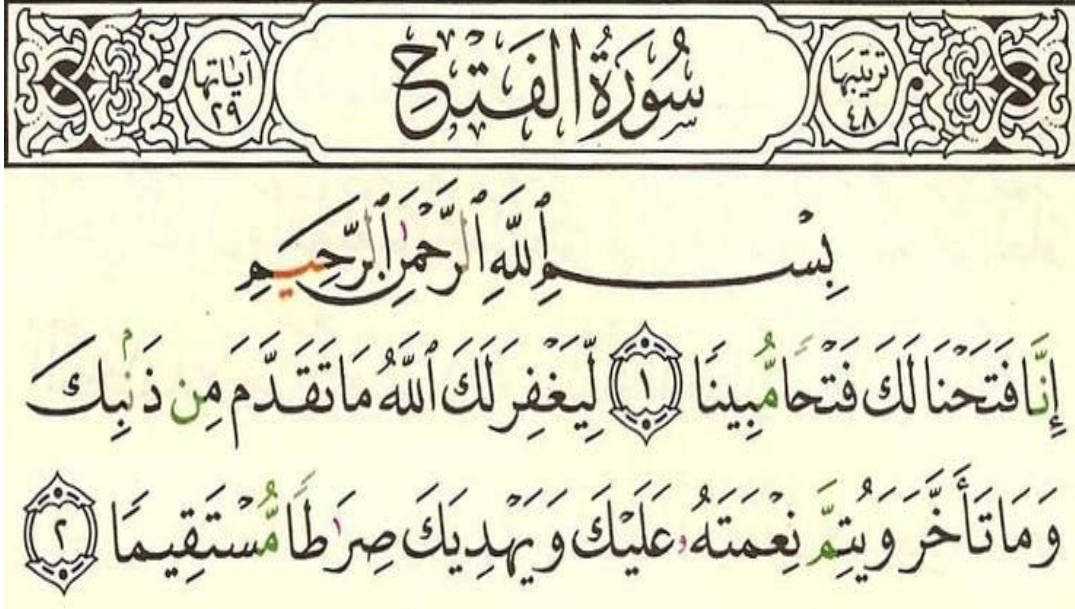 ترتيبها ٤٨
سُورَةُ الفَتْحِ
آياتها ٢٩
بِسْمِ ٱللَّهِ ٱلرَّحْمَٰنِ ٱلرَّحِيمِ
إِنَّا فَتَحْنَا لَكَ فَتْحًا مُّبِينًا ١ لِّيَغْفِرَ لَكَ ٱللَّهُ مَا تَقَدَّمَ مِن ذَنۢبِكَ
وَمَا تَأَخَّرَ وَيُتِمَّ نِعْمَتَهُۥ عَلَيْكَ وَيَهْدِيَكَ صِرَٰطًا مُّسْتَقِيمًا ٢